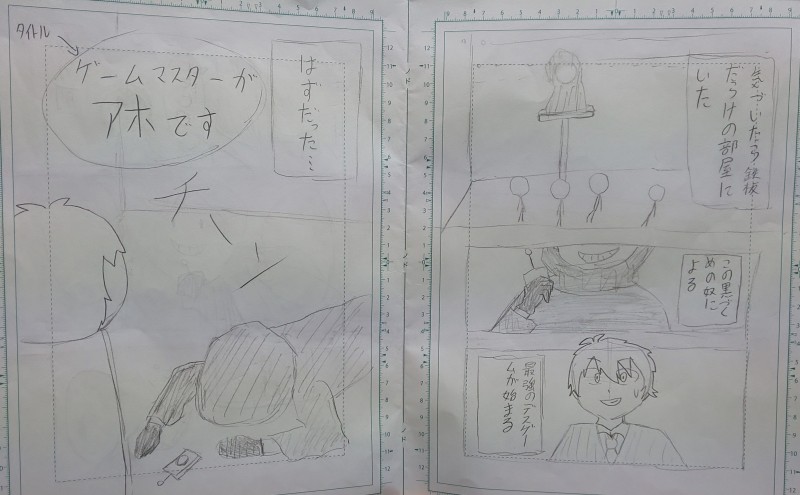 気づいたら鉄板
だらけの部屋に
いた
この黒づく
めの奴に
よる
最強のデスゲー
ムが始まる
はずだった…
タイトル
ゲームマスターが
アホです
チーン